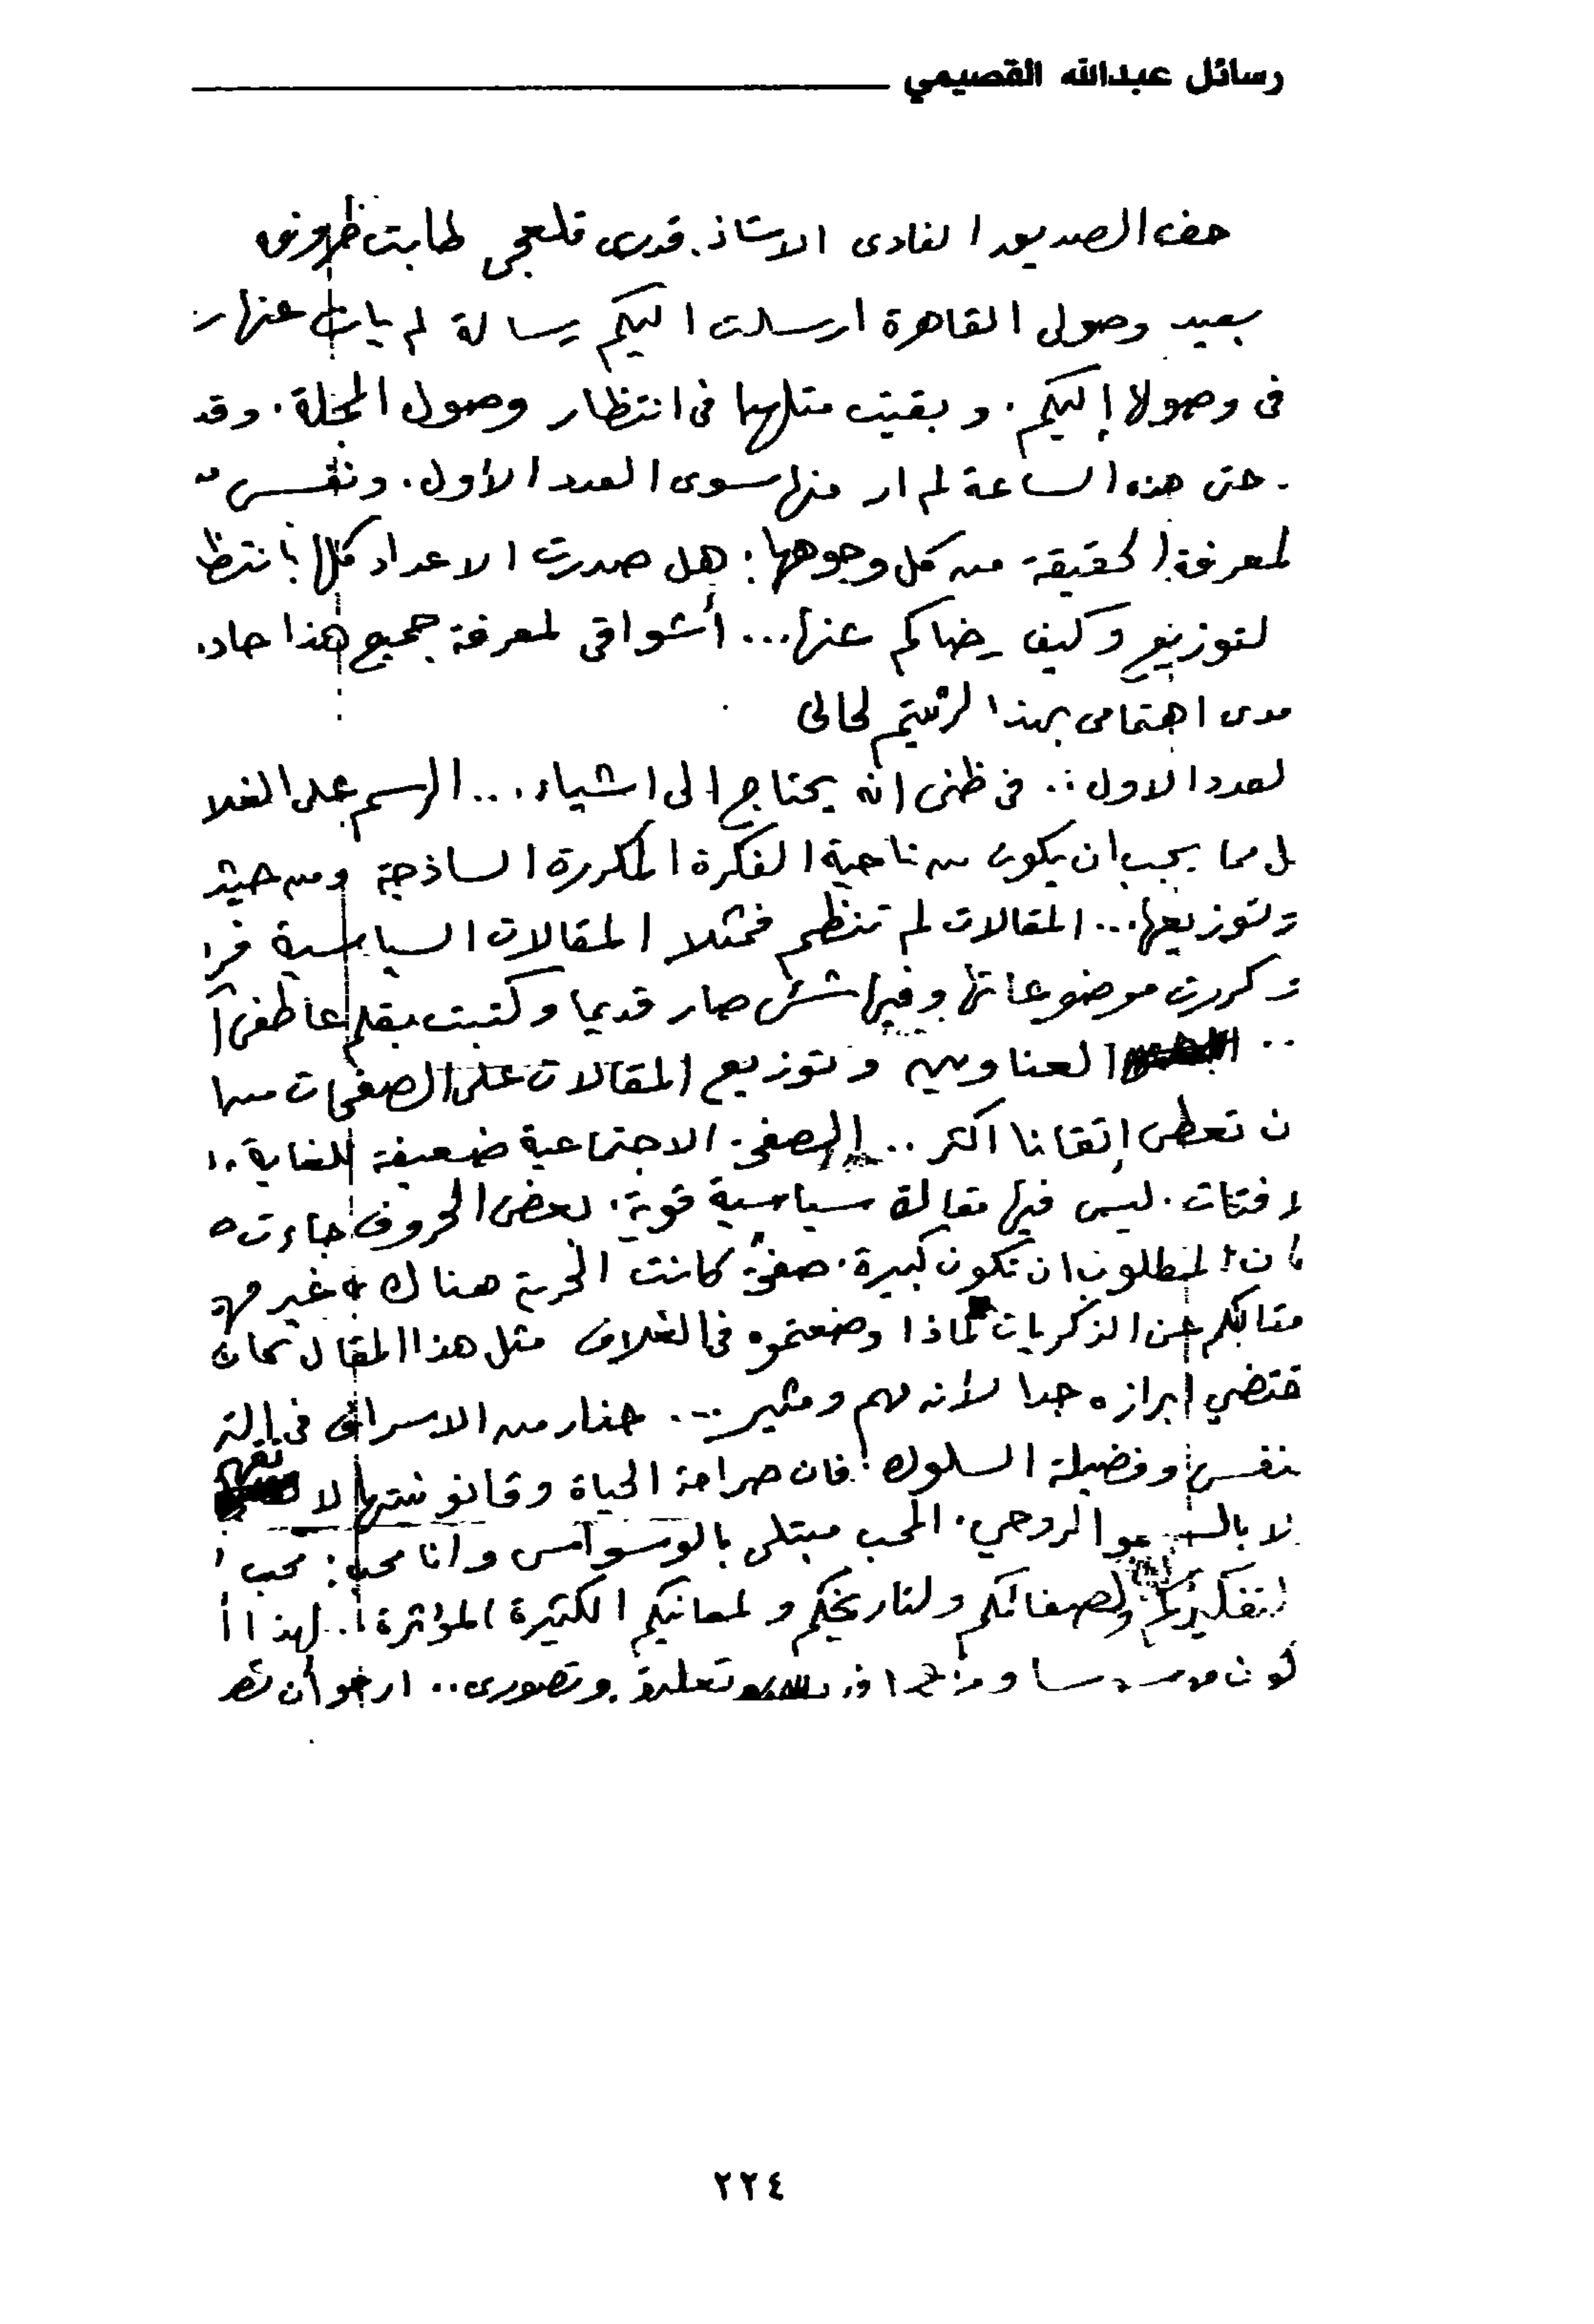 رسائل عبدالله القصيمي
حضرة الصديق الفادى الاستاذ. قدرى قلعجى طابت ظروفه
بعيد وصولى القاهرة ارسلت اليكم رسالة لم يأت عنها ر
فى وصولا إليكم. و بقيت متلهما فى انتظار وصول المجلة. وقد
. حتى هذه الساعة لم ار منها سوى العدد الاول. ونفسى
لمعرفة الحقيقة من كل وجوهها: هل صدرت الاعداد كلها بانتظا
لتوزيع وكيف رضاكم عنها... أشواقى لمعرفة جميع هذا حاد.
مدى اهتمامى بهذا لرئيتم لحالى
لعدد الاول.. فى ظنى انه يحتاج الى اشياء... الرسم على الغلا
ل مما يجب ان يكون من ناحية الفكرة المكررة الساذجة ومن حيث
وتوزيعها... المقالات لم تنظم فمثلا المقالات السياسية فر
و كررت موضوعاتها وفيها شئ صار قديما وكتبت بقلم عاطفى ا
.. العناوين وتوزيع المقالات على الصفحات
ن تعطى إتقانا اكثر .. الصفحة الاجتماعية ضعيفة للغاية..
لافتات. ليس فيها مقالة سياسية قوية. بعض الحروف جاءت
ان المطلوب ان تكون كبيرة. صفحة كانت الحرية هناك غير
مقالكم عن الذكريات لماذا وضعتموه فى الغلاف مثل هذا المقال كان
قتضي ابرازه جدا لأنه مهم ومثير ... حذار من الاسراف فى
نفس وفضيلة السلوك: فان صراحة الحياة وقانونيتها لا تفهم
لا بالسمو الروحي. المحب مبتلى بالوسواس وانا محب: محب
لتفكيركم ولصفاتكم ولتاريخكم ولمعانيكم الكثيرة المؤثرة.. لهذا أ
كون تعليق وتصورى.. ارجو أن
٢٢٤